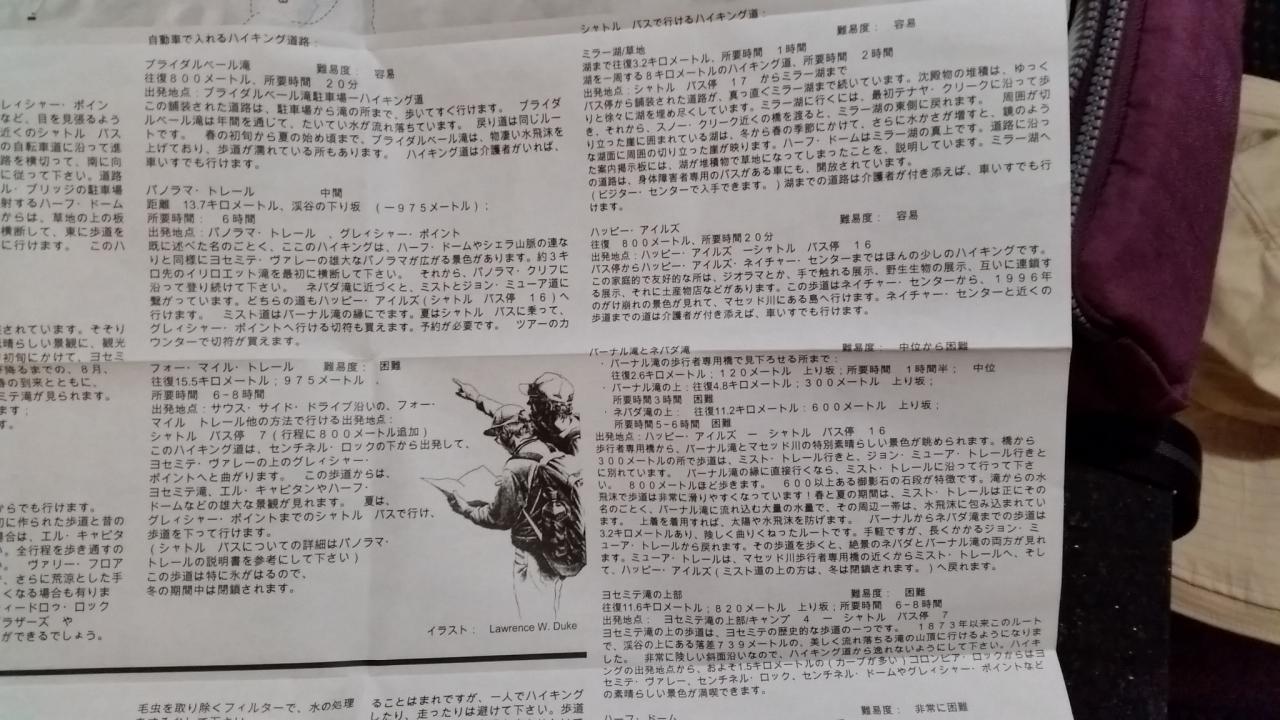 レイシャー・ポイン
など、目を見張るよう
近くのシャトル バス
の自転車道に沿って進
路を横切って、南に向
に従って下さい。道路
ル・ブリッジの駐車場
射するハーフ・ドーム
からは、草地の上の板
横断して、東に歩道を
に行けます。 このハ
されています。そそり
素晴らしい景観に、観光
初旬にかけて、ヨセミ
が降るまでの、8月、
春の到来とともに、
ミテ滝が見られます。
ます；
す。
からでも行けます。
初に作られた歩道と昔の
場合は、エル・キャピタ
い。全行程を歩き通すの
。 ヴァリー・フロア
、さらに荒涼とした手
くなる場合も有りま
ィードロゥ・ロック
ブラザーズ や
ができるでしょう。
自動車で入れるハイキング道路：
ブライダルベール滝 難易度： 容易
往復800メートル、所要時間 20分
出発地点：ブライダルベール滝駐車場ーハイキング道
この舗装された道路は、駐車場から滝の所まで、歩いてすぐ行けます。 ブライダ
ルベール滝は年間を通じて、たいてい水が流れ落ちています。 戻り道は同じルー
トです。 春の初旬から夏の始め頃まで、ブライダルベール滝は、物凄い水飛沫を
上げており、歩道が濡れている所もあります。 ハイキング道は介護者がいれば、
車いすでも行けます。
パノラマ・トレール 中間
距離 13.7キロメートル、渓谷の下り坂 （ー975メートル）；
所要時間： 6時間
出発地点：パノラマ・トレール 、グレイシャー・ポイント
既に述べた名のごとく、ここのハイキングは、ハーフ・ドームやシェラ山脈の連な
りと同様にヨセミテ・ヴァレーの雄大なパノラマが広がる景色があります。約3キ
ロ先のイリロエット滝を最初に横断して下さい。 それから、パノラマ・クリフに
沿って登り続けて下さい。 ネバダ滝に近づくと、ミストとジョン・ミューア道に
繋がっています。どちらの道もハッピー・アイルズ（シャトル バス停 16）へ
行けます。 ミスト道はバーナル滝の縁にでます。夏はシャトル バスに乗って、
グレイシャー・ポイントへ行ける切符も買えます。予約が必要です。 ツアーのカ
ウンターで切符が買えます。
フォー・マイル・トレール 難易度： 困難
往復15.5キロメートル；975メートル ．
所要時間 6-8時間
出発地点：サウス・サイド・ドライブ沿いの、フォー・
マイル トレール他の方法で行ける出発地点：
シャトル バス停 7（行程に800メートル追加）
このハイキング道は、センチネル・ロックの下から出発して、
ヨセミテ・ヴァレーの上のグレイシャー・
ポイントへと曲がります。 この歩道からは、
ヨセミテ滝、エル・キャピタンやハーフ・
ドームなどの雄大な景観が見れます。 夏は、
グレイシャー・ポイントまでのシャトル バスで行け、
歩道を下って行けます。
（シャトル バスについての詳細はパノラマ・
トレールの説明書を参考にして下さい）
この歩道は特に氷がはるので、
冬の期間中は閉鎖されます。
イラスト： Lawrence W. Duke
シャトル バスで行けるハイキング道：
ミラー湖/草地 難易度： 容易
湖まで往復3.2キロメートル、所要時間 1時間
湖を一周する8キロメートルのハイキング道、所要時間 2時間
出発地点：シャトル バス停 17 からミラー湖まで
バス停から舗装された道路が、真っ直ぐミラー湖まで続いています。沈殿物の堆積は、ゆっく
りと徐々に湖を埋め尽くしています。ミラー湖に行くには、最初テナヤ・クリークに沿って歩
き、それから、スノー・クリーク近くの橋を渡ると、ミラー湖の東側に戻れます。 周囲が切
り立った崖に囲まれている湖は、冬から春の季節にかけて、さらに水かさが増すと、鏡のよう
な湖面に周囲の切り立った崖が映ります。ハーフ・ドームはミラー湖の真上です。道路に沿っ
た案内掲示板には、湖が堆積物で草地になってしまったことを、説明しています。ミラー湖へ
の道路は、身体障害者専用のバスがある車にも、開放されています。
（ビジター・センターで入手できます。）湖までの道路は介護者が付き添えば、車いすでも行
けます。
ハッピー・アイルズ 難易度： 容易
往復 800メートル、所要時間20分
出発地点：ハッピー・アイルズ ーシャトル バス停 16
バス停からハッピー・アイルズ・ネイチャー・センターまではほんの少しのハイキングです。
この家庭的で友好的な所は、ジオラマとか、手で触れる展示、野生生物の展示、互いに連鎖す
る展示、それに土産物店などがあります。この歩道はネイチャー・センターから、1996年
のがけ崩れの景色が見れて、マセッド川にある島へ行けます。ネイチャー・センターと近くの
歩道までの道は介護者が付き添え、車いすでも行けます。
バーナル滝とネバダ滝 難易度： 中位から困難
・バーナル滝の歩行者専用橋で見下ろせる所まで：
往復2.6キロメートル；120メートル 上り坂；所要時間 1時間半； 中位
・バーナル滝の上：往復4.8キロメートル；300メートル 上り坂；
所要時間3時間 困難
・ネバダ滝の上： 往復11.2キロメートル：600メートル 上り坂；
所要時間5-6時間 困難
出発地点：ハッピー・アイルズ ー シャトル バス停 16
歩行者専用橋から、バーナル滝とマセッド川の特別素晴らしい景色が眺められます。橋から
300メートルの所で歩道は、ミスト・トレール行きと、ジョン・ミューア・トレール行きと
に別れています。 バーナル滝の縁に直接行くなら、ミスト・トレールに沿って行って下さ
い。 800メートルほど歩きます。 600以上ある御影石の石段が特徴です。滝からの水
飛沫で歩道は非常に滑りやすくなっています！春と夏の期間は、ミスト・トレールは正にその
名のごとく、バーナル滝に流れ込む大量の水量で、その周辺一帯は、水飛沫に包み込まれてい
ます。 上着を着用すれば、太陽や水飛沫を防げます。 バーナルからネバダ滝までの歩道は
3.2キロメートルあり、険しく曲りくねったルートです。手軽ですが、長くかかるジョン・ミ
ューア・トレールから戻れます。その歩道を歩くと、絶景のネバダとバーナル滝の両方が見れ
ます。ミューア・トレールは、マセッド川歩行者専用橋の近くからミスト・トレールへ、そし
て、ハッピー・アイルズ（ミスト道の上の方は、冬は閉鎖されます。）へ戻れます。
ヨセミテ滝の上部 難易度： 困難
往復11.6キロメートル；820メートル 上り坂；所要時間 6-8時間
出発地点： ヨセミテ滝の上部/キャンプ 4 ー シャトル バス停 7
ヨセミテ滝の上の歩道は、ヨセミテの歴史的な歩道の一つです。 1873年以来このルート
で、渓谷の上にある落差739メートルの、美しく流れ落ちる滝の山頂に行けるようになりま
した。 非常に険しい斜面沿いなので、ハイキング道から逸れないようにして下さい。ハイキ
ングの出発地点から、およそ1.5キロメートルの（カーブが多い）コロンビア・ロックからはヨ
セミテ・ヴァレー、センチネル・ロック、センチネル・ドームやグレイシャー・ポイントなど
の素晴らしい景色が満喫できます。
ハーフ・ドーム 難易度： 非常に困難
毛虫を取り除くフィルターで、水の処理
ることはまれですが、一人でハイキング
したり、走ったりは避けて下さい。歩道